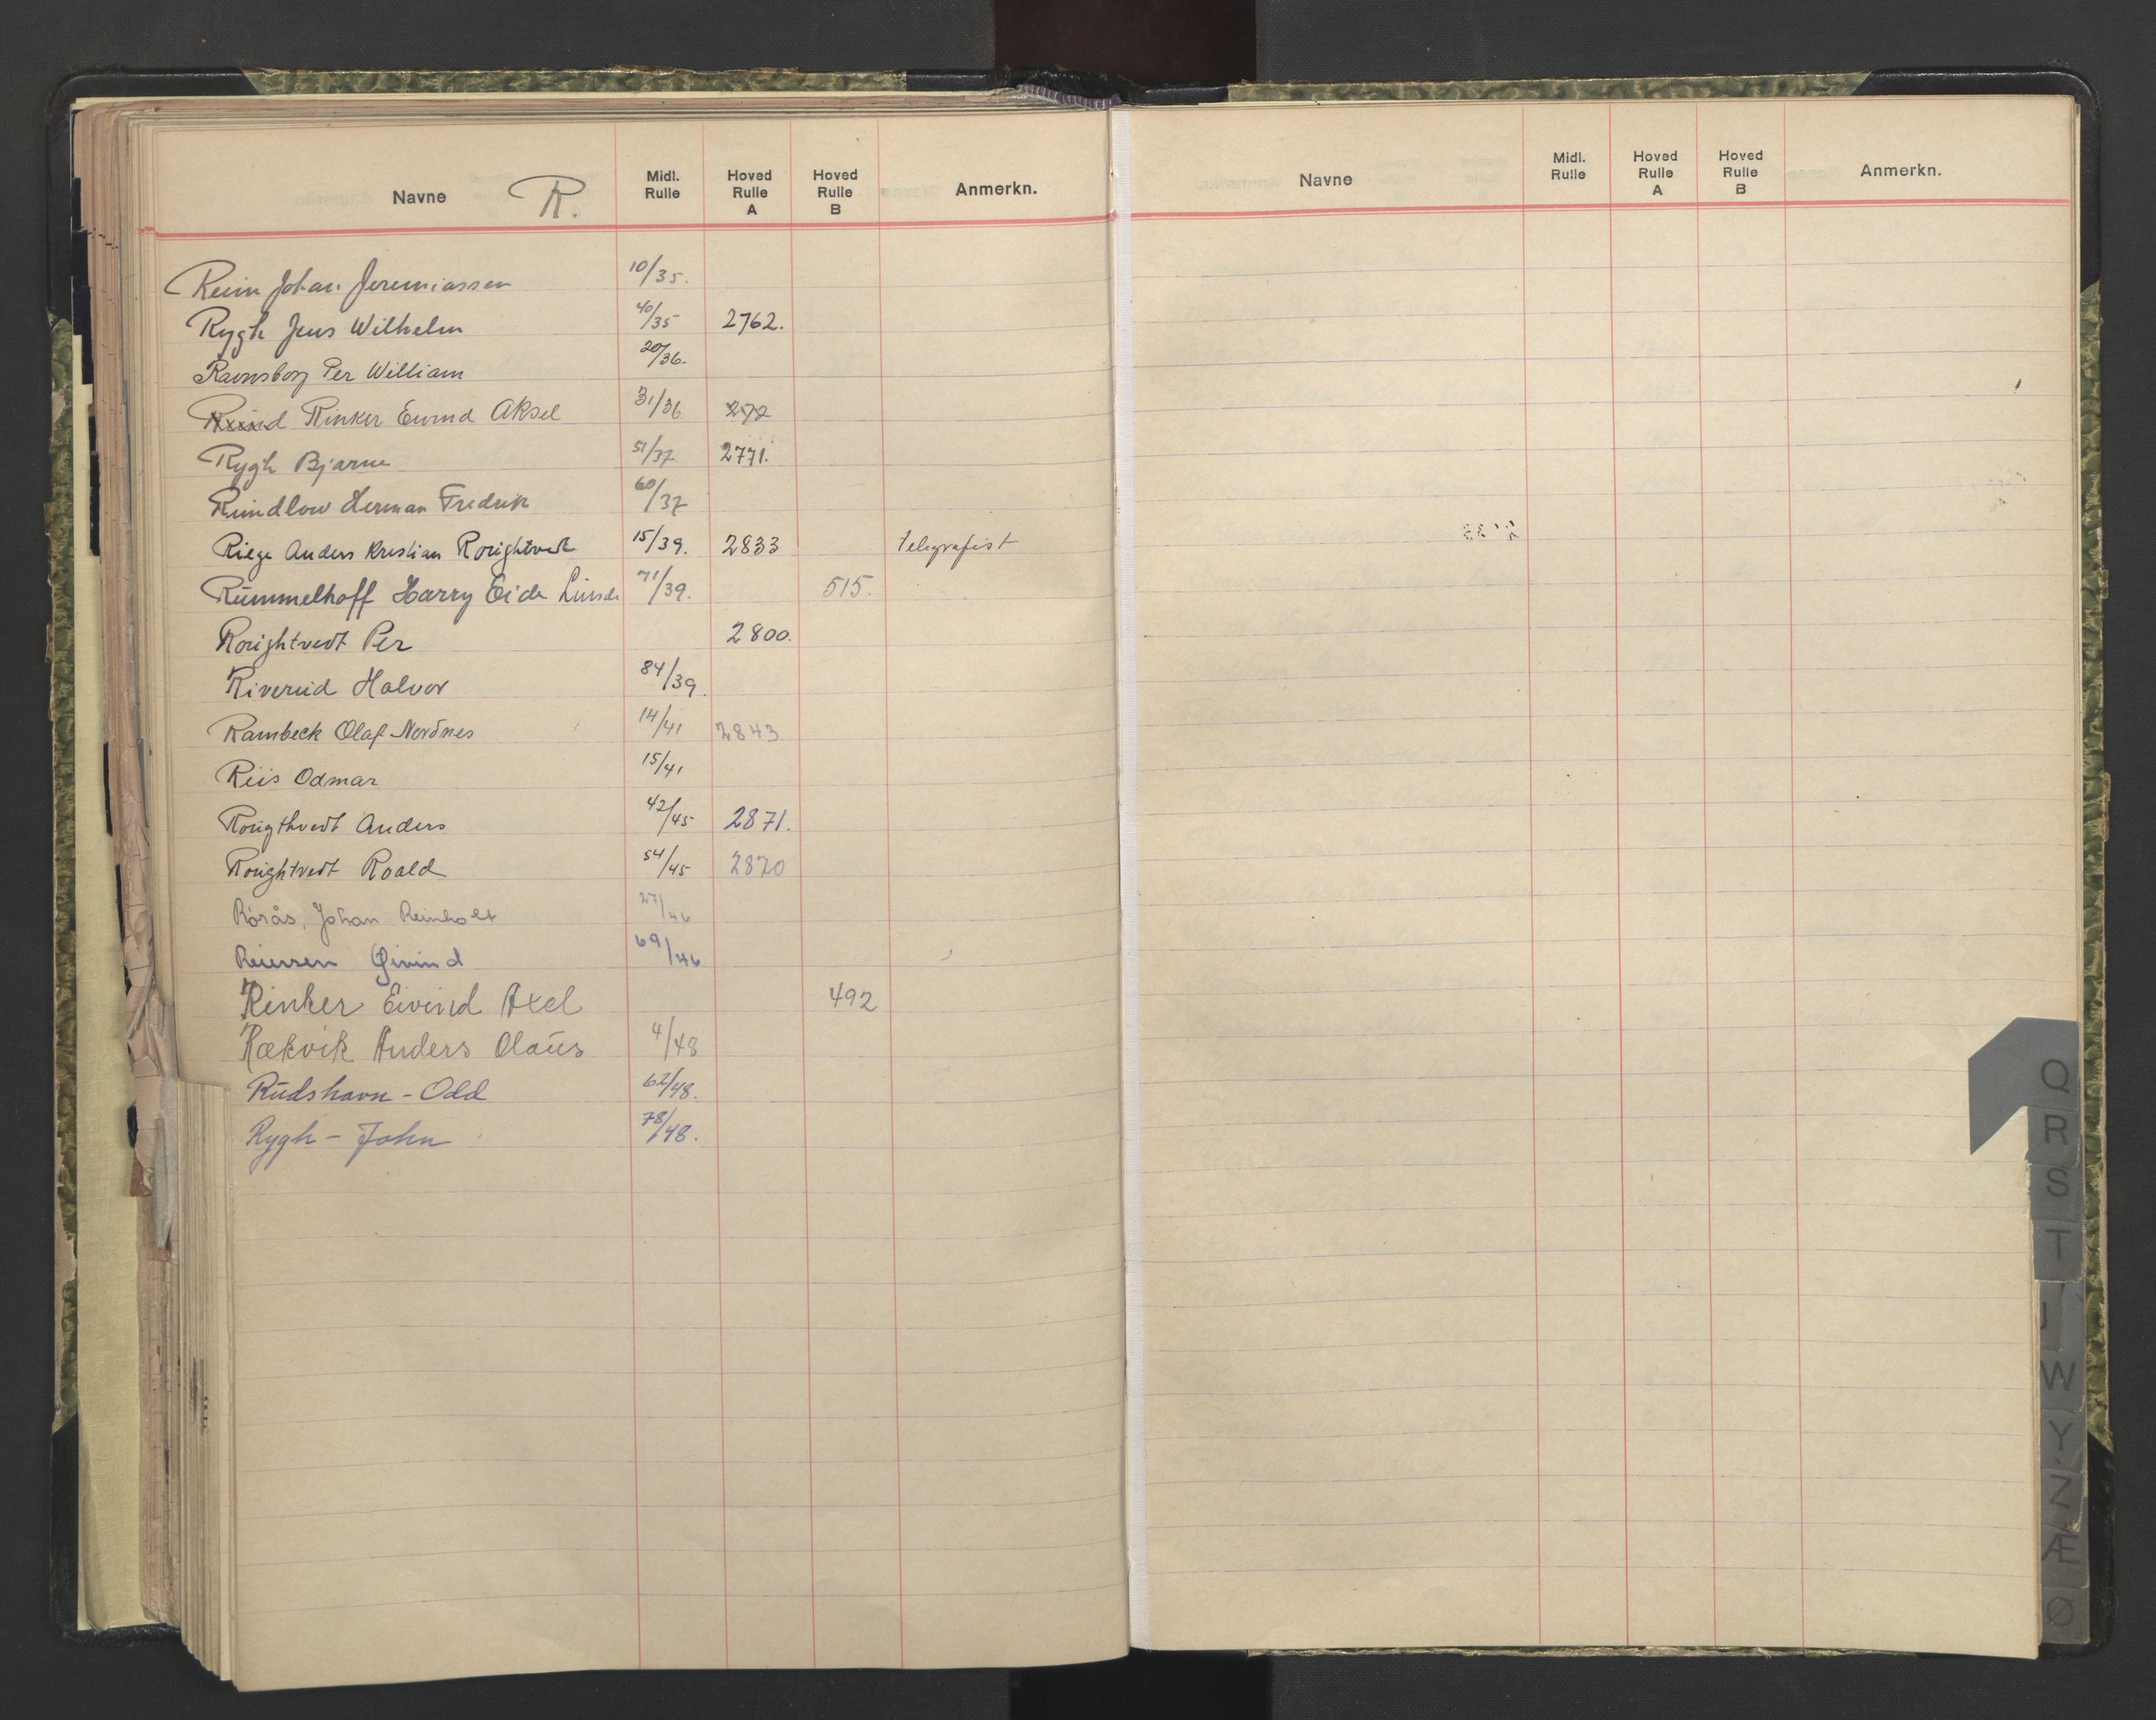 Navne R. Midl. Rulle Hoved Rulle A Hoved Rulle B Anmerkn.
Reim Johan Jeremiassen 10/35.
Rygh Jens Wilhelm 40/35 2762.
Ravnsborg Per William 20/36.
Rinker Eivind Aksel 31/36 272
Rygh Bjarne 51/37. 2771.
Rundlow Herman Fredrik 60/37
Riege Anders Kristian Rorightvedt 15/39. 2833 Telegrafist
Rummelhoff Harry Eide Linde 71/39. 515.
Rorightvedt Per 2800.
Riverud Halvor 84/39.
Rambeck Olaf Nordnes 14/41 2843
Riis Odmar 15/41
Rorigthvedt Anders 42/45 2871.
Rorightvedt Roald 54/45 2870
Rörås, Johan Reinholt 27/46
Reiersen Øivind 69/46
Rinker Eivind Axel 492
Rækvik Anders Olaus 4/48
Rudshavn - Odd 62/48.
Rygh - John 78/48.
Navne Midl. Rulle Hoved Rulle A Hoved Rulle B Anmerkn.
Q
R
S
T
W
Y
Z
Æ
Ø